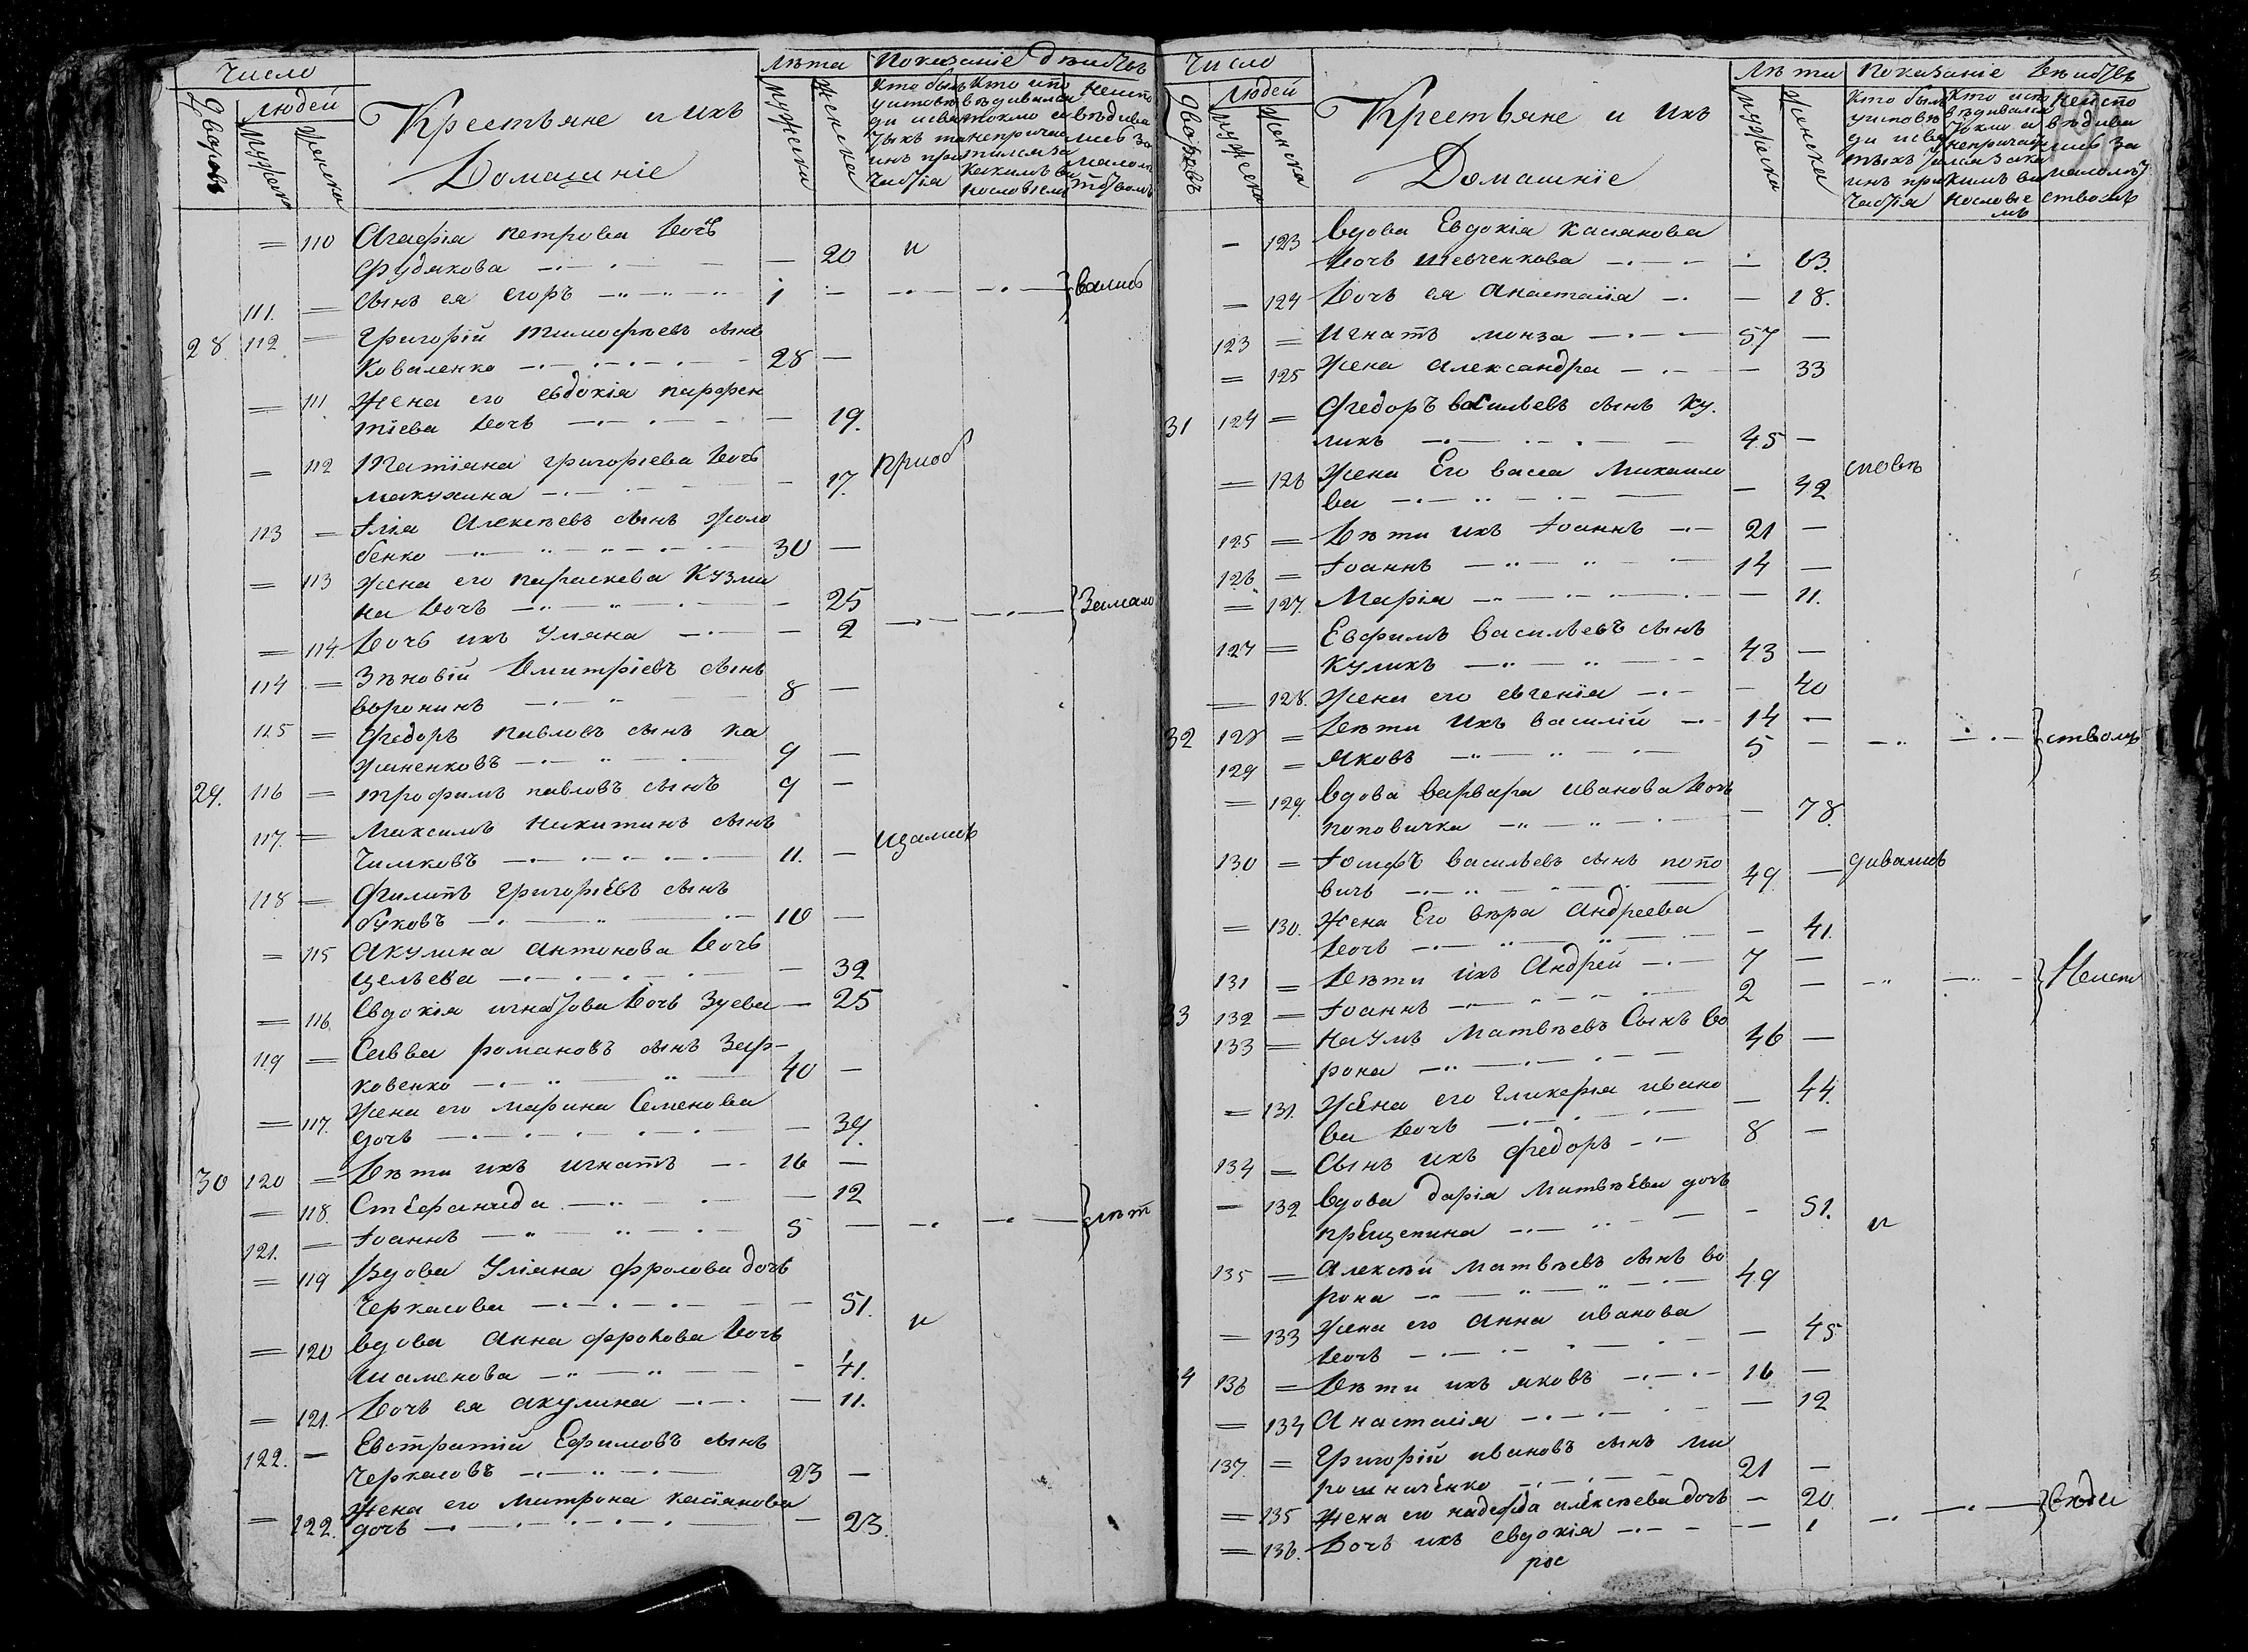 Число
Дворовъ
людей
мужеска
женска
Крестьяне и ихъ
Домашніе
лѣта
мужеска
женска
Показаніе дѣйствъ
Кто былъ у исповѣди и святыхъ таинъ причастія
Кто исповѣдывался токмо а непричастился и за какимъ виновословіемъ
Неисповѣдывались за малолѣтствомъ
= 110 Агафіа петрова дочь
Фудакова — 20 и
111. = сынъ ея егоръ 1 — вались
28. 112 = Григорій тимофѣевъ сынъ
Коваленко 28 —
= 111 Жена его евдокія парфен
тіева дочь — 19.
= 112 Татіяна григоріева дочь
макухина — 17. приоб
113 = Іліа Алексѣевъ сынъ жоло
бенко 30 —
= 113 жена его параскева кузми
на дочь — 25
= 114. дочь ихъ уліяна — 2 Замало
114 = Зѣновій дмитріевъ сынъ
воронинъ 8 —
115 = Федоръ павловъ сынъ ка
жненковъ 9 —
29. 116 = трофимъ павловъ сынъ 9 —
117. = Максимъ никитинъ сынъ
Чишковъ 11. — щались
118 = Филипъ григоріевъ сынъ
буковъ 10 —
= 115 Акулина антонова дочь
щельева — 32
= 116. Евдокія игнатова дочь Зуева — 25
119 = Савва романовъ сынъ Зар-
ковенко 40 —
= 117. жена его марина Семенова
дочь — 39.
30 120 = Дѣти ихъ игнатъ 16 —
= 118. Стефанида — 12
121. = Іоаннъ 5 — — — лѣт
= 119 Вдова Уліяна фролова дочь
Черкасова — 51. и
= 120 вдова Анна фролова дочь
Шаменова — 41.
= 121. Дочь ея акулина — 11.
122. — Евстратій Ефимовъ сынъ
черкасовъ 23 —
= 122. Жена его матрона касіянова
дочь — 23.
Число
Дворовъ
людей
мужеска
женска
Крестьяне и ихъ
Домашніе
лѣта
мужеска
женска
Показаніе дѣйствъ
— 123 вдова Евдокія касіянова
дочь шевченкова — 63.
= 124 дочь ея анастасія — 18.
123 = Игнатъ монза 57 —
= 125 жена александра — 33
31 124 = Федоръ васильевъ сынъ ку.
ликъ 45 —
= 126 жена Его васса михаило
ва — 42 исповѣ
125 = Дѣти ихъ Іоаннъ 21 —
126 = Іоаннъ 14 —
= 127. Марія — 11.
127 = Евфимъ васильевъ сынъ
куликъ 43 —
= 128. жена его евгенія — 40
32 128 = дѣти ихъ василій 14 —
129 = яковъ 5 — ствомъ
= 129. вдова варвара иванова дочь
поповичка — 78.
130 = Іосифъ васильевъ сынъ попо
вичъ 49 — дывались
= 130. Жена Его вѣра андреева
дочь — 41.
131 = Дѣти ихъ Андрей 7 —
33 132 = Іоаннъ 2 — Неисп
133 = Наумъ матвѣевъ Сынъ во
рона 46 —
= 131. жена его гликерія ивано
ва дочь — 44.
134 = Сынъ ихъ федоръ 8 —
— 132 вдова дарія матвѣева дочь
прещепина — 51. и
135 = алексѣй матвѣевъ сынъ во
рона 49
= 133 жена его анна иванова
дочь — 45
34 136 = дѣти ихъ яковъ 16 —
= 134 Анастасія — 12
137. = Григорій ивановъ сынъ ми
рошниченко 21 —
= 135 Жена его надежда алексѣева дочь — 20.
= 136. Дочь ихъ евдокія — 1 овѣды
рос